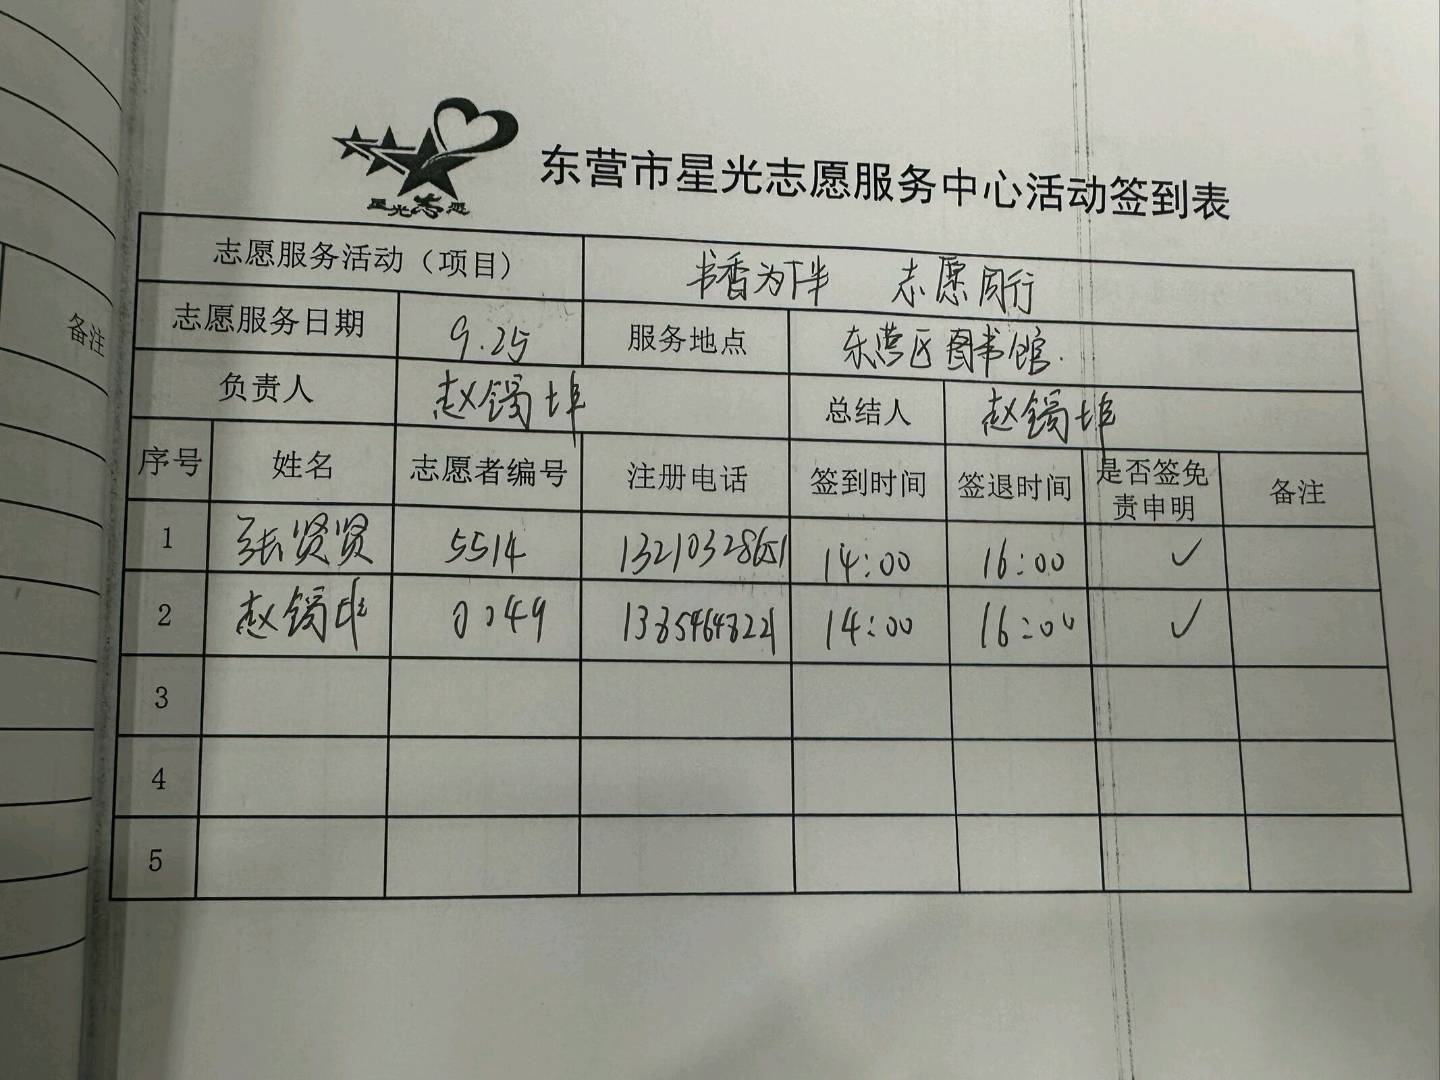 星光志愿
东营市星光志愿服务中心活动签到表
志愿服务活动（项目） 书香为伴 志愿同行
备注
志愿服务日期 9.25 服务地点 东营区图书馆.
负责人 赵锡埠 总结人 赵锡埠
序号 姓名 志愿者编号 注册电话 签到时间 签退时间 是否签免责申明 备注
1 张贤贤 5514 13210328651 14:00 16:00 ✓
2 赵锡埠 0049 13854648221 14:00 16:00 ✓
3
4
5